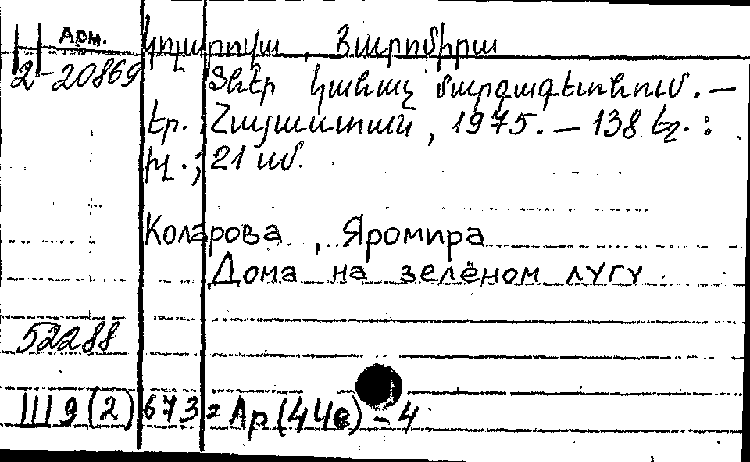 Арм.
Կոլարովա, Յարոմիրա
2-20869 Տներ կանաչ մարգագետնում. —
Եր.: Հայաստան, 1975. — 138 էջ. :
իլ.; 21 սմ.
Коларова, Яромира
Дома на зелёном лугу
52288
Ш9(2) 673 = Ар(44е) - 4